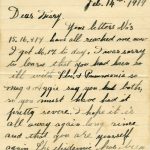 Feb. 14th 1919
Dear Fairy.
Your letters No's
15, 16, & 14 have all reached me now
I got No. 17 to day, I was sorry
to learn that you had been so
ill with Flu & Pneumonia so
say you had both,
so you must have had it
pretty severe, I hope it is
all away again long since
and that you are yourself
again The epidemic has been